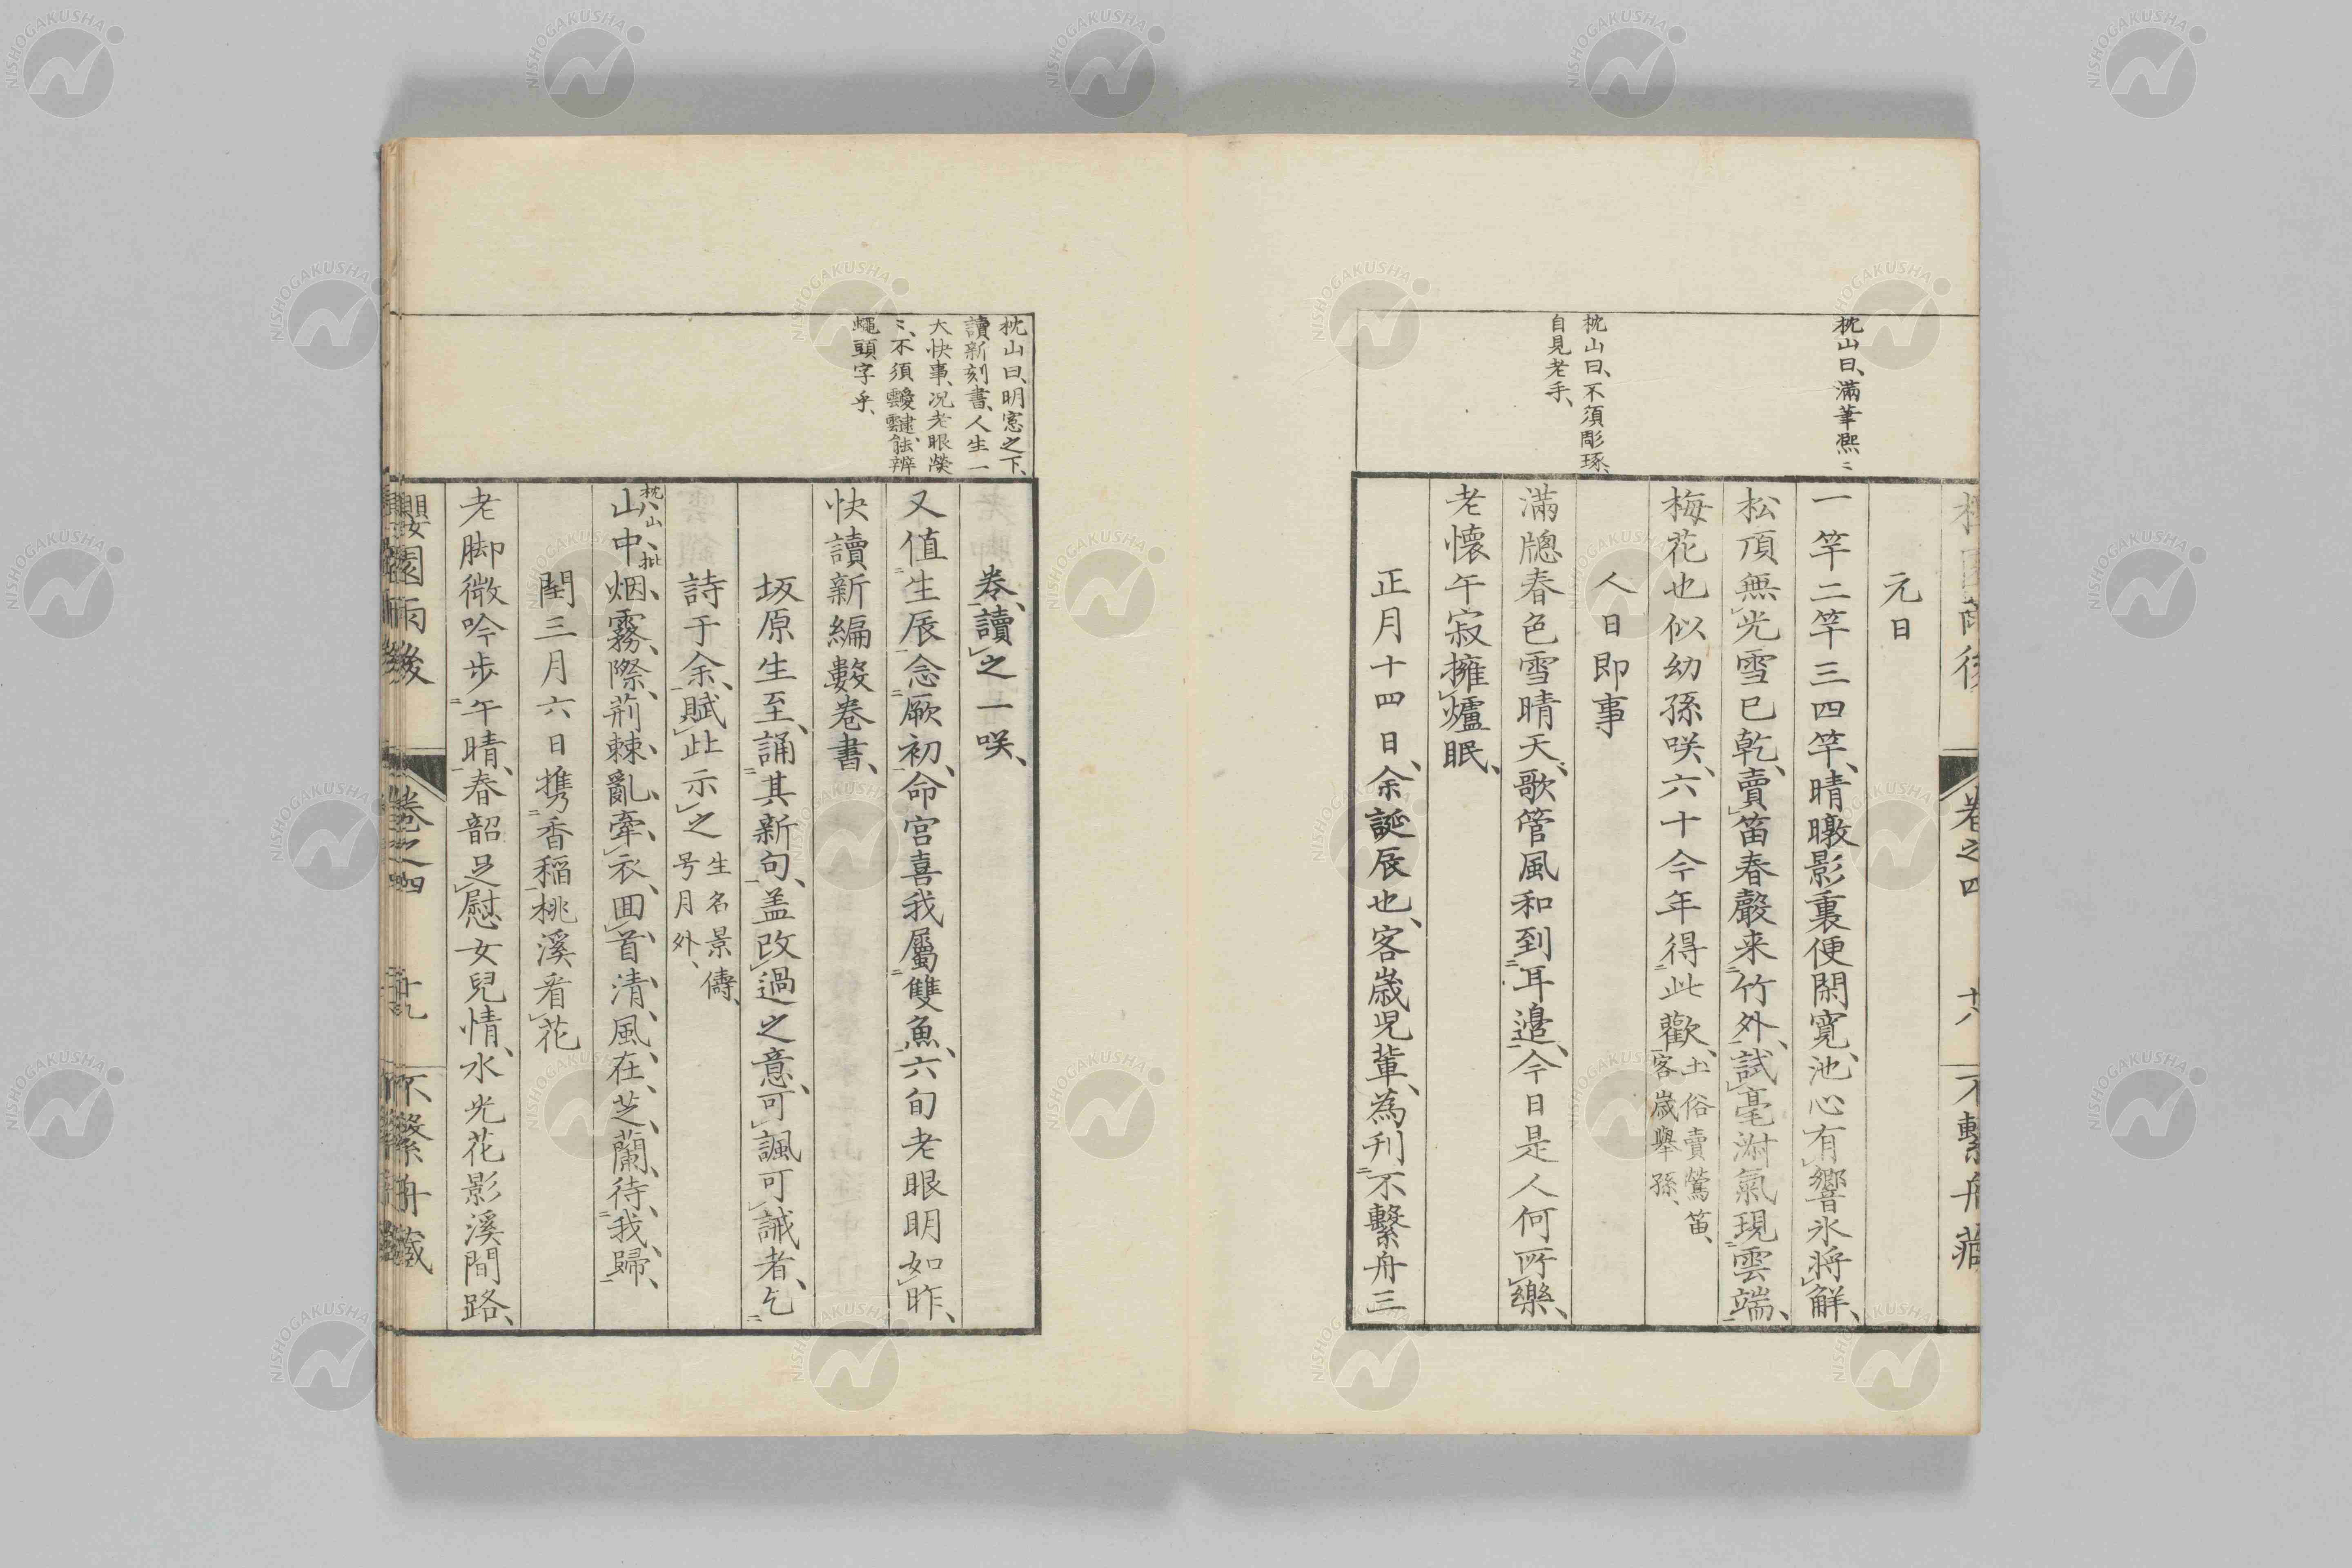 枕山曰、滿筆熙〻
枕山曰、不須彫琢、
自見老手、
元日
一竿二竿三四竿、晴暾影裏便閑寬、池心有響氷將解、
松頂無光雪已乾、賣笛春聲来竹外、試毫洲氣現雲端、
梅花也似幼孫咲、六十今年得此歡、土俗賣鶯笛、
客歳擧孫、
人日即事
滿牕春色雪晴天、歌管風和到耳邉、今日是人何所樂、
老懷午寂擁爐眠、
正月十四日、余誕辰也、客歳児輩、為刊不繫舟三
卷之四
十八
不繫舟藏
枕山曰、明窓之下、
讀新刻書、人生一
大快事、况老眼
〻、不須靉靆、能辨
蠅頭字乎、
卷、讀之一咲、
又值生辰念厥初、命宮喜我屬雙魚、六旬老眼明如昨、
快讀新編數卷書、
坂原生至、誦其新句、盖改過之意、可諷可誡者、乞
詩于余、賦此示之 生名景儔、
号月外、
枕山批
山中烟霧際、荊棘亂牽衣、囬首清風在、芝蘭待我歸、
閏三月六日攜香稲桃溪看花
老脚微吟步午晴、春韶足慰女兒情、水光花影溪間路、
櫻園雨後
卷之四
十九
不繫舟藏